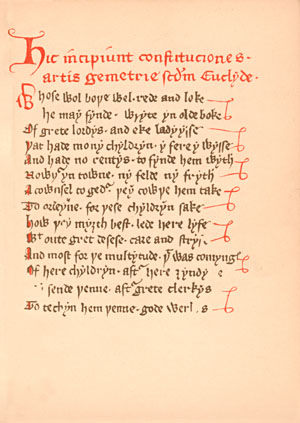 Hic incipiunt constituciones
artis gemetrie scdm Euclyde.
Whose wol boþe wel rede and loke
he may fynde wryte yn olde boke
Of grete lordys and eke ladyysse
Þat had mony chyldryn y fere y wysse
And had no rentys to fynde hem wyth
Nowþr yn towne ny felde ny fryth
A cownsel togedr þey cowþe hem take
To ordeyne for þese chyldryn sake
how þey myȝth best lede here lyfe
Wt oute gret desese care and stryf
And most for þe multytude þt was comynge
Of here chyldryn aftr here ȝyndynge
sende þenne aftr grete clerkys
To techyn hem þenne gode werkys